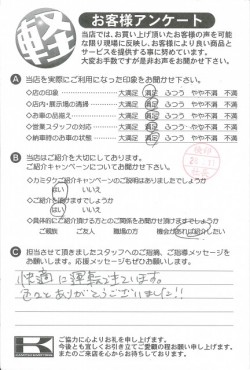 軽
お客様アンケート
当店では、お買い上げ頂いたお客様の声を可能
な限り現場に反映し、お客様により良い商品と
サービスを提供する事に努めています。
大変お手数ですが是非お声をお聞かせ下さい。
A 当店を実際にご利用になった印象をお聞かせ下さい。
店の印象 大満足 満足 ふつう やや不満 不満
店内・展示場の清掃 大満足 満足 ふつう やや不満 不満
お車の品揃え 大満足 満足 ふつう やや不満 不満
営業スタッフの対応 大満足 満足 ふつう やや不満 不満
納車時のお車の状態 大満足 満足 ふつう やや不満 不満
B 当店はご紹介を大切にしております。
ご紹介キャンペーンについてお聞かせ下さい。
カミタケご紹介キャンペーンのご説明はありましたでしょうか
はい いいえ
ご紹介も頂けますでしょうか
はい いいえ
具体的にご紹介頂ける方とのご関係をお聞かせ頂けますでしょうか
ご親族 ご友人 職場の方 機会があれば紹介したい
C 担当させて頂きましたスタッフへのご指摘、ご指導メッセージを
お願いします。応援メッセージもぜひお願いします。
快適に運転できています。
ありがとうございました!!
K
ご協力に心よりお礼を申し上げます。
今後とも宜しくお引き立てご愛顧の程お願い申し上げます。
またのご来店を心からお待ちしております。